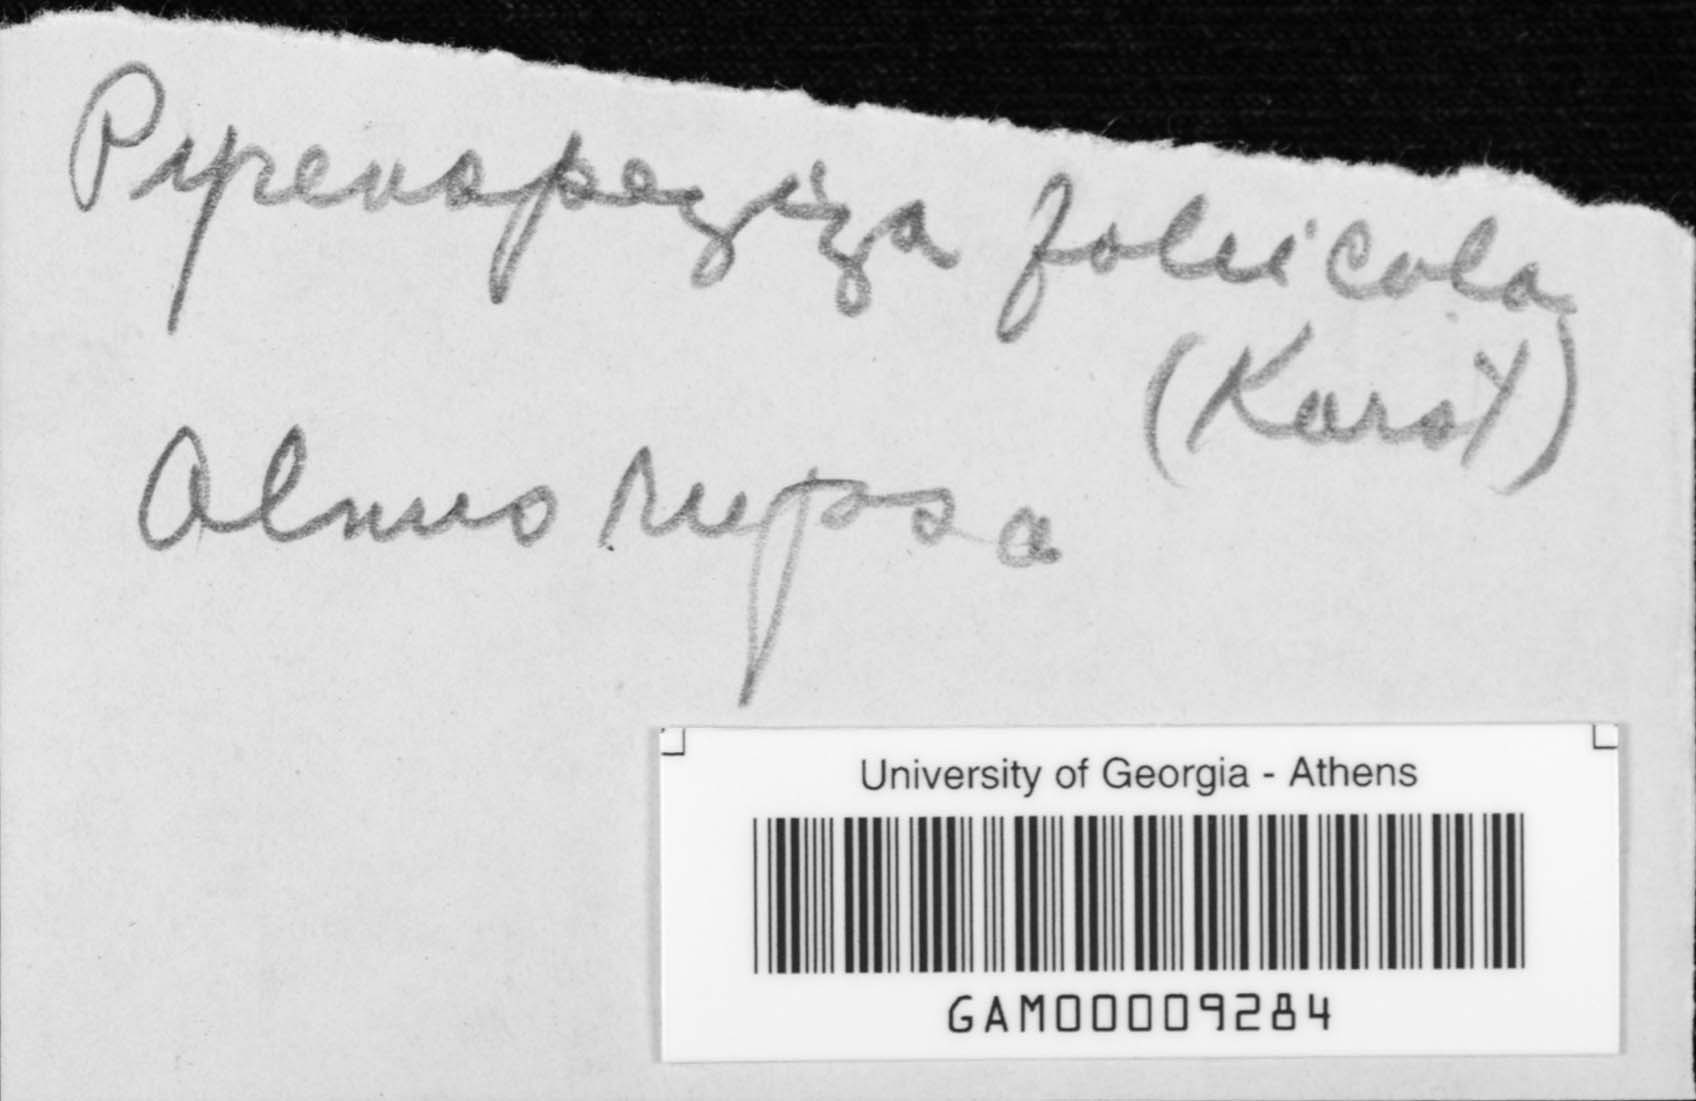 Pyrenopeziza foliicola
(Karst)
Alnus rugosa
University of Georgia - Athens
GAM00009284